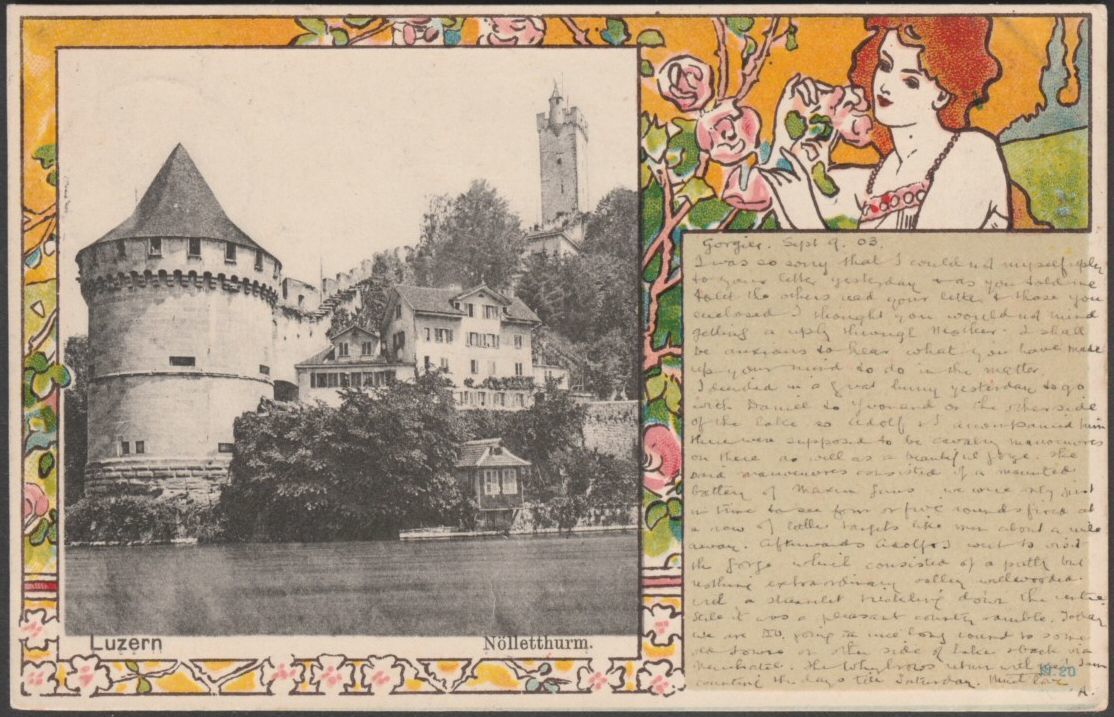 Luzern
Nölletthurm.
Gorgier. Sept 9. 03.
I was so sorry that I could not myself reply
to your letter yesterday & as you told me
to let the others read your letter & those you
enclosed I thought you would not mind
getting a reply through Mother. I shall
be anxious to hear what you have made
up your mind to do in the matter.
I decided in a great hurry yesterday to go
with Daniel to Yvonand on the other side
of the lake so Adolf & I accompanied him
there were supposed to be cavalry manoeuvres
on there as well as a beautiful gorge. The
said manoeuvres consisted of a mounted
battery of Maxim guns we were only just
in time to see four or five rounds fired at
a row of little targets like men about a mile
away. Afterwards Adolf & I went to visit
the gorge which consisted of a pretty but
nothing extraordinary valley well wooded
with a streamlet trickling down the centre
Still it was a pleasant country ramble. Today
we are going a long round to some
old towns on other side of lake & back via
Neuchatel. The return
counting the days till Saturday. Much love
A.
N. 20